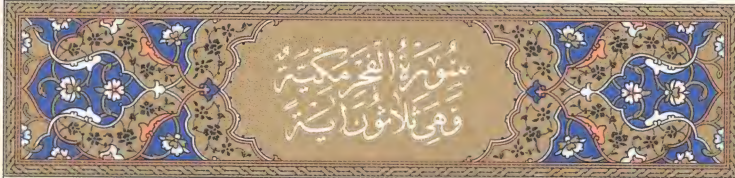 سُورَةُ الْفَجْرِ مَكِّيَّةٌ
وَهِيَ ثَلَاثُونَ آيَةً